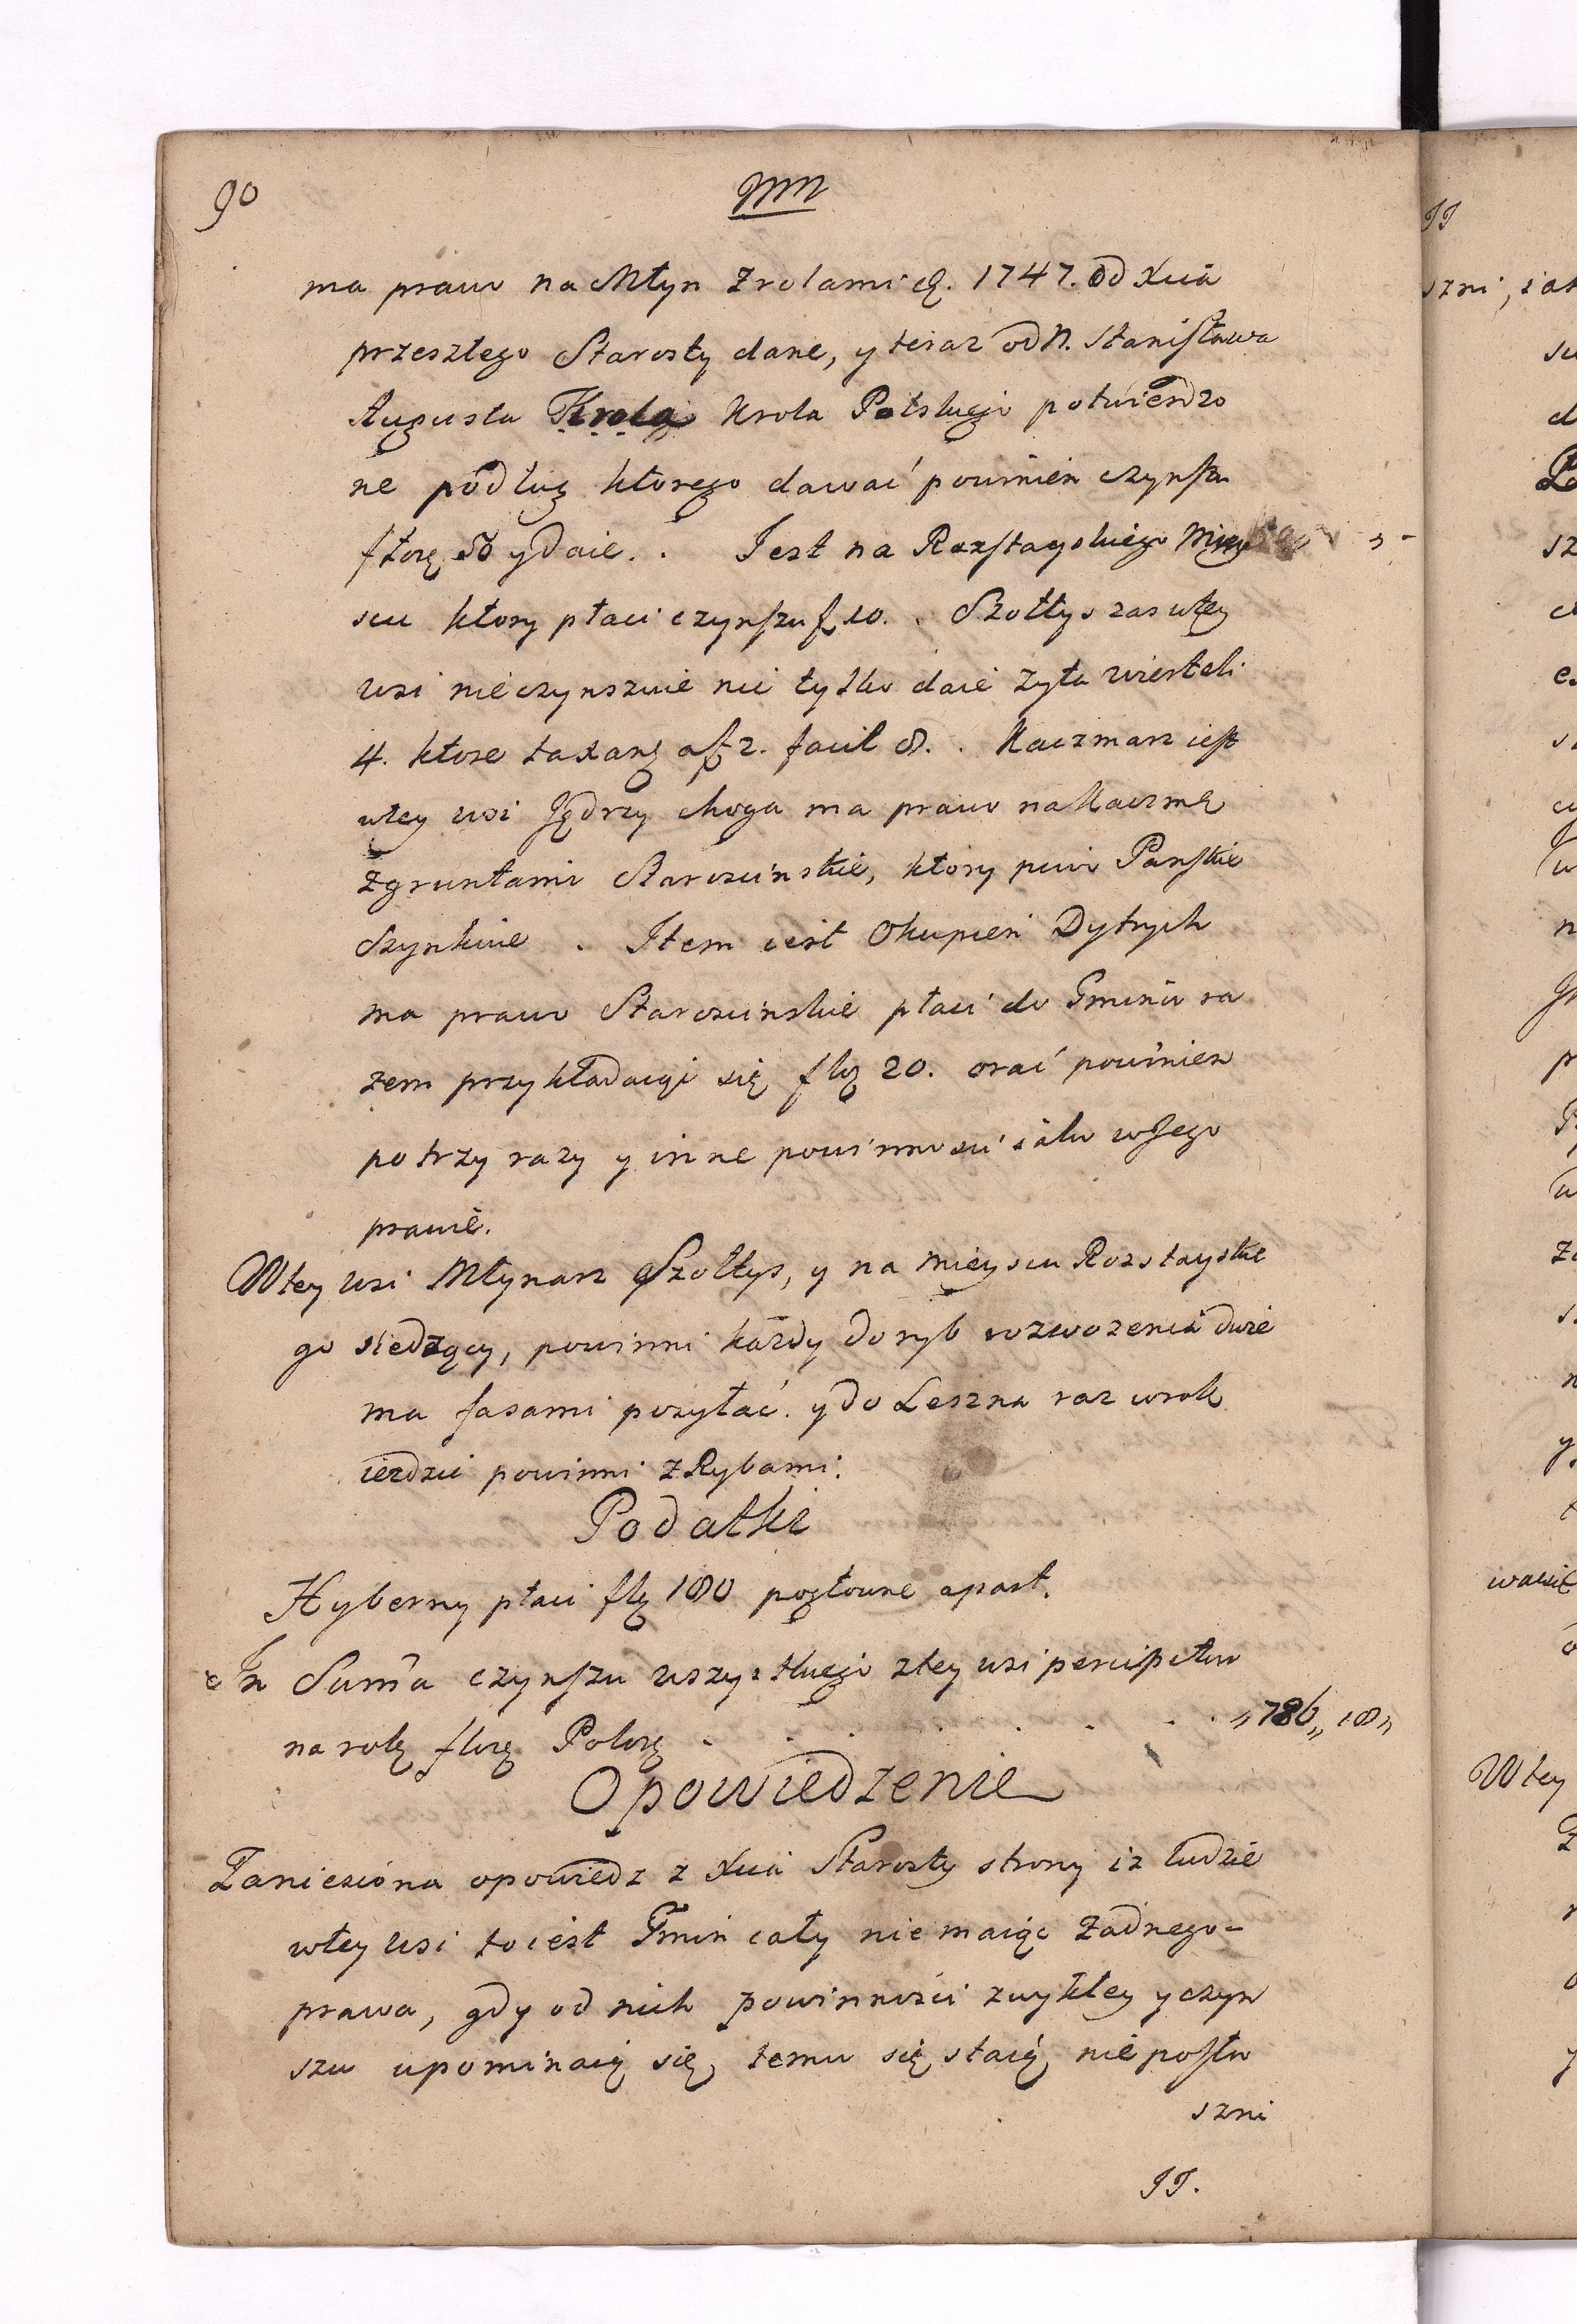 90
ma prawo na Młyn z rolami 1747. od Xcia
przeszłego Starosty dane, y teraz od N. Stanisława
Augusta Krola Krola Polskiego potwierdzo
ne podług ktorego dawać powinien czynszu
50 y daie. . Jest na Rozstayskiego Miey
scu ktory płaci czynszu f 10. . Szołtys zas wtey
wsi nieczynszuie nic tylko daie żyta wierteli
4. ktore taxang a f 2. facit 8. . Kaczmarz iest
wtey wsi Jędrzy choga ma prawo na Kaczmę
z gruntami Starościnskie, ktory piwo Panskie
Szynkuie . Item iest Okupien Dytrych
ma prawo Starościnskie płaci do Gminu ra
zem przykładaiąc się 20. orać powinien
potrzy razy y inne powinnosci iako wJego
prawie.
Wtey wsi Młynarz Szołtys, y na mieyscu Rozstayskie
go siedzący, powinni każdy do ryb wozwozenia dwie
ma fasami posyłać. y do Leszna raz wrok
iezdzic powinni z Rybami.
Podatki
Hyberny płaci 180 pogłowne apart.
In Suma czynszu wszystkiego ztey wsi
na rolę . . . . . . . „786„ 18„
Opowiedzenie
Zaniesiona opowiedz z Xcia Starosty strony iz ludzie
wtey wsi to iest Gmin cały nie maiąc żadnego-
prawa, gdy od nich powinności zwykłey y czyn
szu upominaią się, temu się staią nieposłu
szni
JJ.